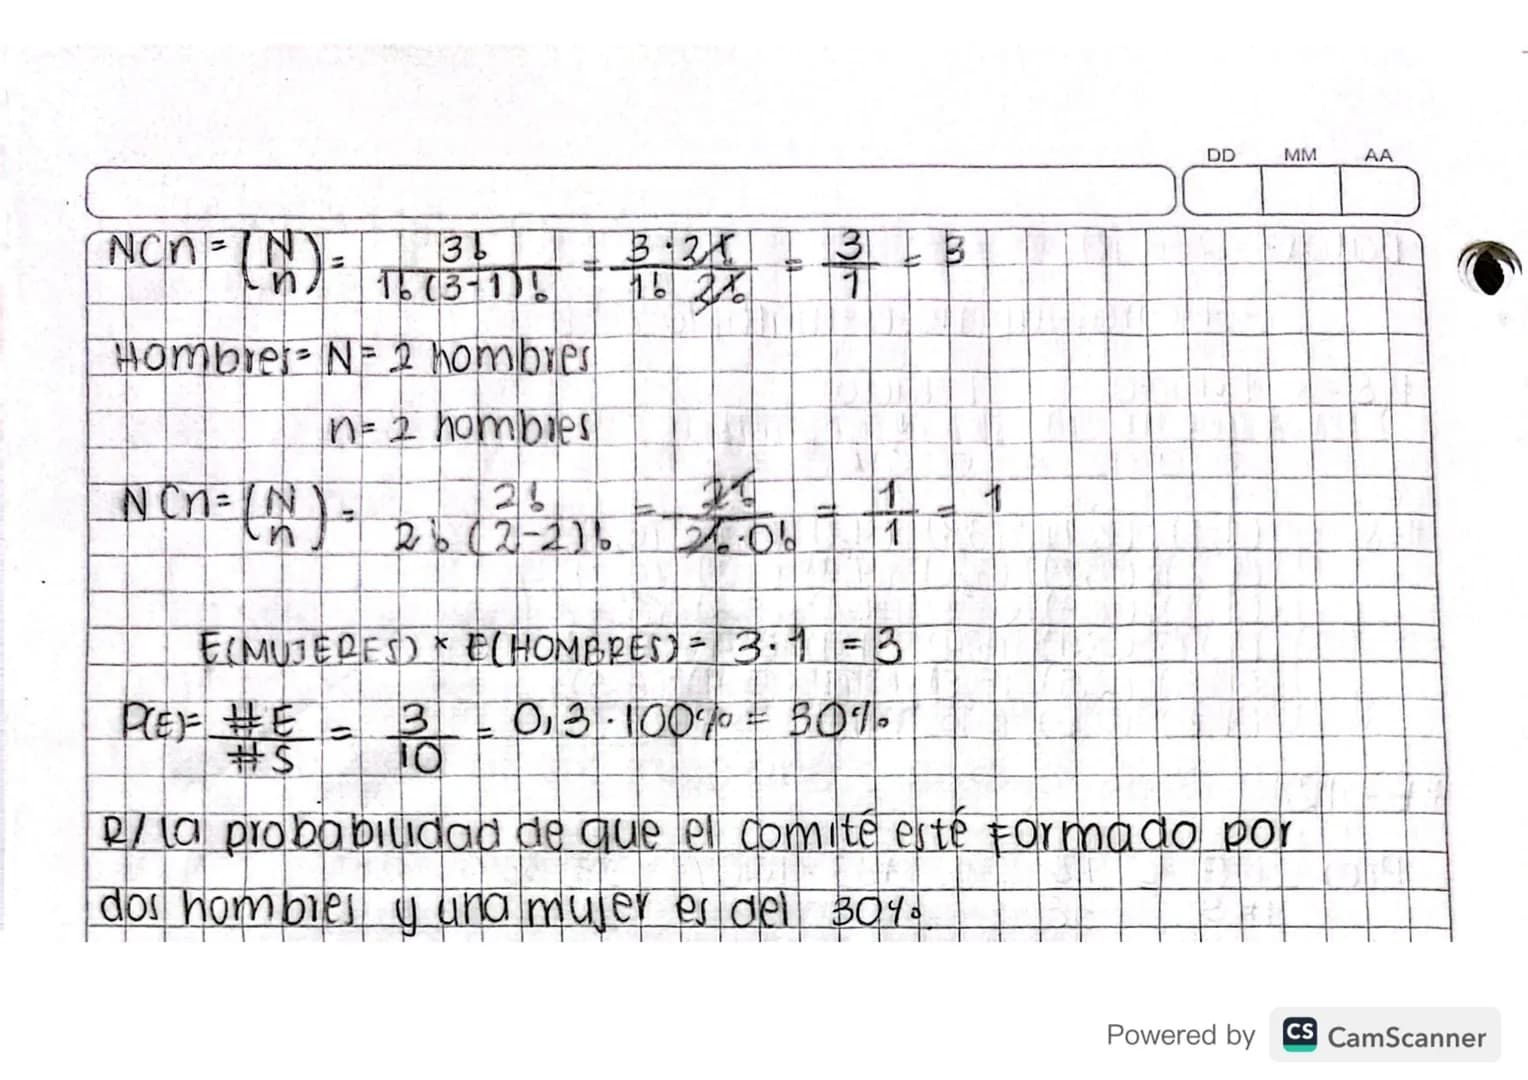 DD MM AA
NCn = (N n) = 3! / 1!(3-1)! = 3·2! / 1! 2! = 3/1 = 3
Hombres= N= 2 hombres
n= 2 hombres
NCn = (N n) = 2! / 2!(2-2)! = 2! / 2!·0! = 1/1 = 1
E(MUJERES) × E(HOMBRES) = 3·1 = 3
P(E)= #E / #S = 3/10 = 0,3·100% = 30%
R/ la probabilidad de que el comité esté formado por
dos hombres y una mujer es del 30%.
Powered by CS CamScanner